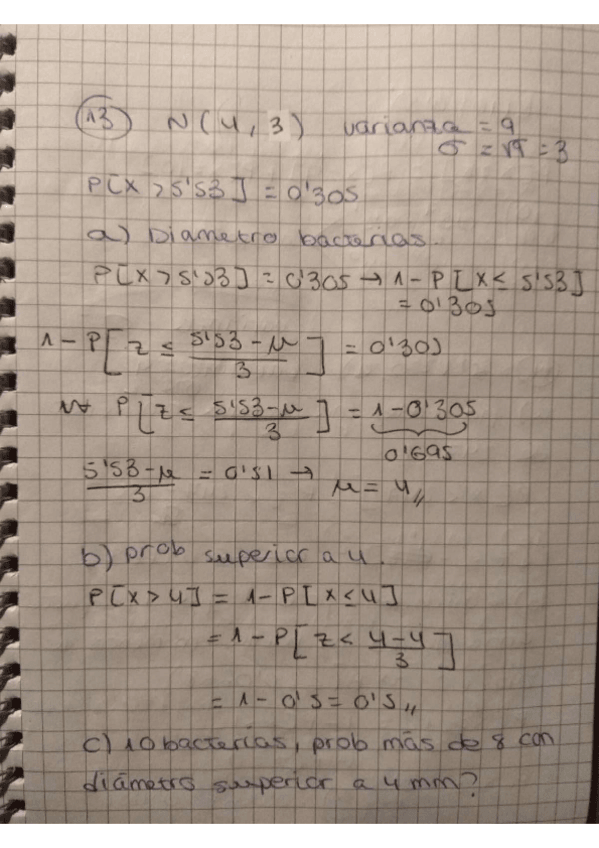 13 N(4, 3) varianza = 9
σ = √9 = 3
P[X > 5'53] = 0'305
a) Diametro bacterias.
P[X > 5'53] = 0'305 → 1 - P[X ≤ 5'53]
= 0'305
1 - P[z ≤ (5'53 - μ)/3] = 0'305
P[z ≤ (5'53 - μ)/3] = 1 - 0'305
0'695
(5'53 - μ)/3 = 0'51 → μ = 4 //
b) prob superior a 4.
P[X > 4] = 1 - P[X ≤ 4]
= 1 - P[z < (4-4)/3]
= 1 - 0'5 = 0'5 //
c) 10 bacterias, prob más de 8 con
diámetro superior a 4 mm?